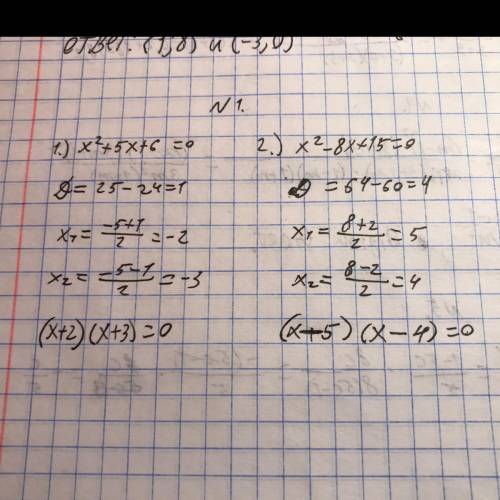 ответ: (1,8) и (-3,0)
N1.
1.) x²+5x+6=0
D=25-24=1
x₁=(-5+1)/2=-2
x₂=(-5-1)/2=-3
(x+2)(x+3)=0
2.) x²-8x+15=0
D=64-60=4
x₁=(8+2)/2=5
x₂=(8-2)/2=4
(x-5)(x-4)=0